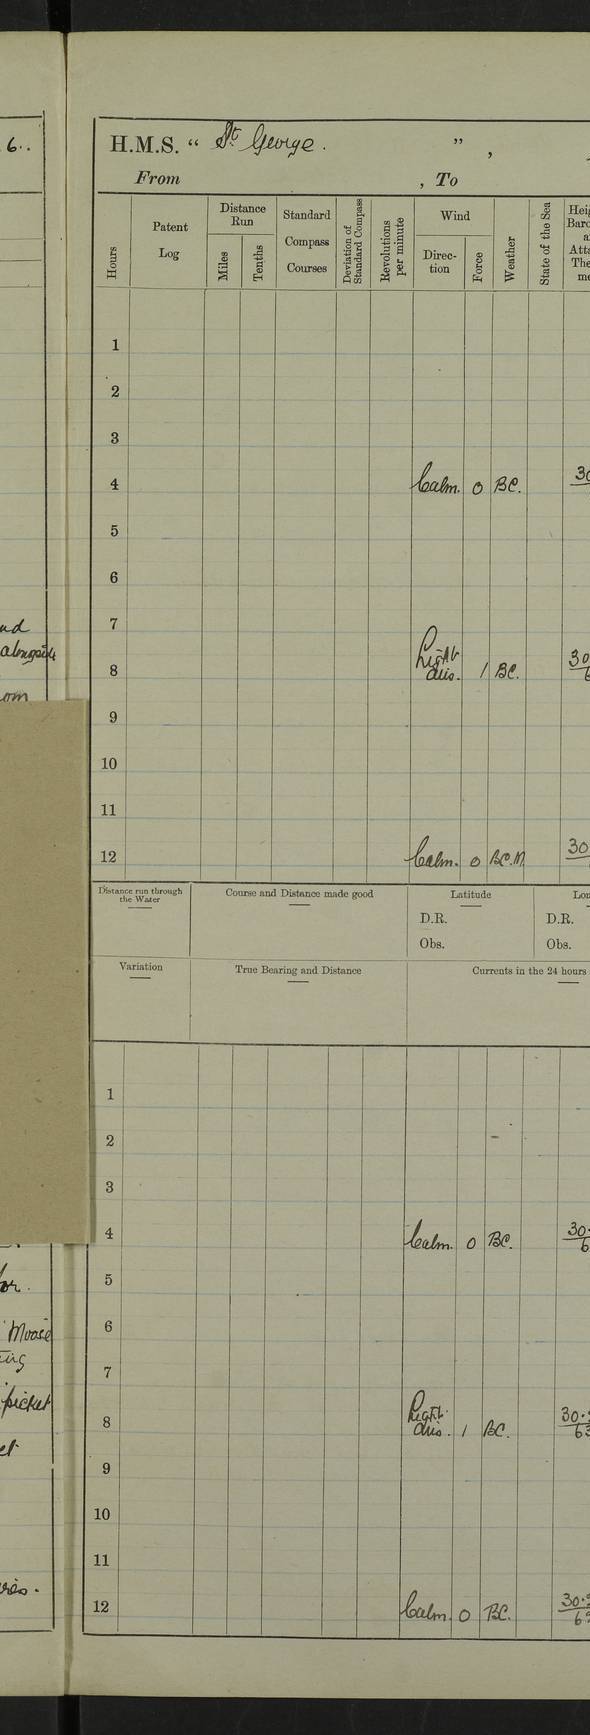 6..
H.M.S. “ St George. ” ,
From , To
Hours
Patent Log
Distance Run
Miles
Tenths
Standard Compass Courses
Deviation of Standard Compass
Revolutions per minute
Wind
Direc-tion
Force
Weather
State of the Sea
1
2
3
4 Calm. 0 BC. 30
5
6
7
ud
alongside
8 Light airs. 1 BC. 30
om
9
10
11
12 Calm. 0 BC.M. 30
Distance run through the Water
Course and Distance made good
Latitude
D.R.
Obs.
D.R.
Obs.
Variation
True Bearing and Distance
Currents in the 24 hours
1
2
3
4 Calm. 0 BC. 30.
6
5
or.
6
Moore
7
ing
picket
8 Light airs. 1 BC. 30.
63
et
9
10
11
12 Calm. 0 BC. 30.
6